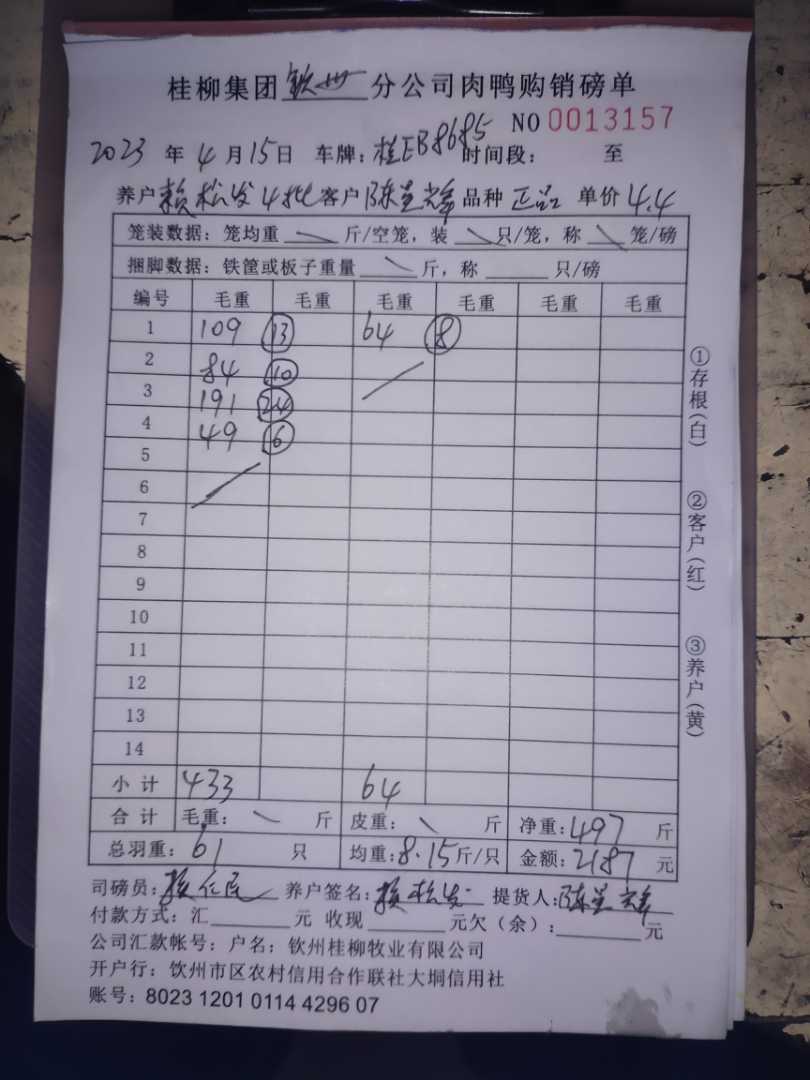 桂柳集团 钦州 分公司肉鸭购销磅单
NO 0013157
2023 年 4 月 15 日 车牌：桂EB8685 时间段： 至
养户 赖松发 4批 客户 陈呈 品种 正品 单价 4.4
笼装数据：笼均重 斤/空笼，装 只/笼，称 笼/磅
捆脚数据：铁筐或板子重量 斤，称 只/磅
编号 毛重 毛重 毛重 毛重 毛重 毛重
1 109 13 64 8
2 84 10
3 191 24
4 49 6
5
6
7
8
9
10
11
12
13
14
小计 433 64
合计 毛重： 斤 皮重： 斤 净重：497 斤
总羽重：61 只 均重：8.15 斤/只 金额：2187 元
司磅员：赖仁民 养户签名：赖松发 提货人：陈呈
付款方式：汇 元 收现 元欠（余）： 元
公司汇款帐号：户名：钦州桂柳牧业有限公司
开户行：钦州市区农村信用合作联社大垌信用社
账号：8023 1201 0114 4296 07
①存根（白）
②客户（红）
③养户（黄）